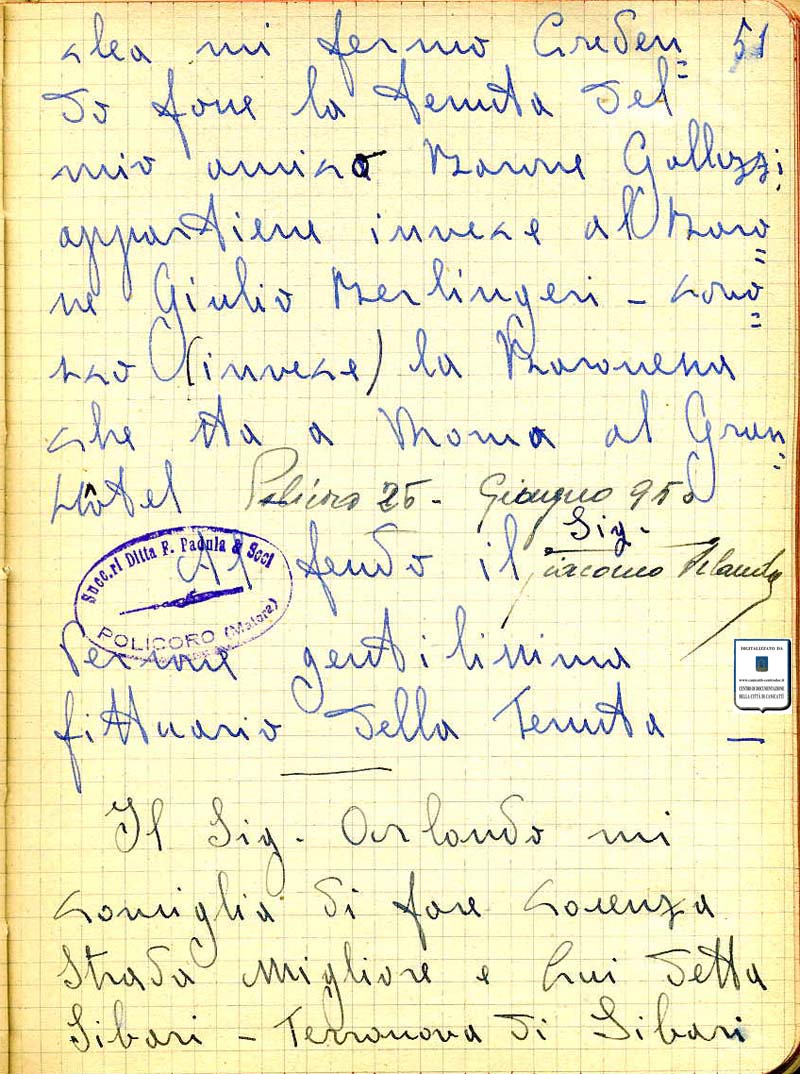 clea mi fermo Creden= 51
do fosse la tenuta del
mio amico Barone Galluzzi;
appartiene invece al Baro=
ne Giulio Berlingeri - cono=
sco (invece) la Baronessa
che sta a Roma al Gran=
Hôtel Policoro 25 - Giugno 950
Al fendo il Sig.
Giacomo Orlando
Succ.ri Ditta F. Padula & Soci
POLICORO (Matera)
Persone gentilissima
fittuario della Tenuta —
Il Sig. Orlando mi
consiglia di fare Cosenza
Strada Migliore e qui detta
Sibari - Terranova di Sibari
DIGITALIZZATO DA
www.canicatti-centrodoc.it
CENTRO DI DOCUMENTAZIONE
DELLA CITTÀ DI CANICATTÌ